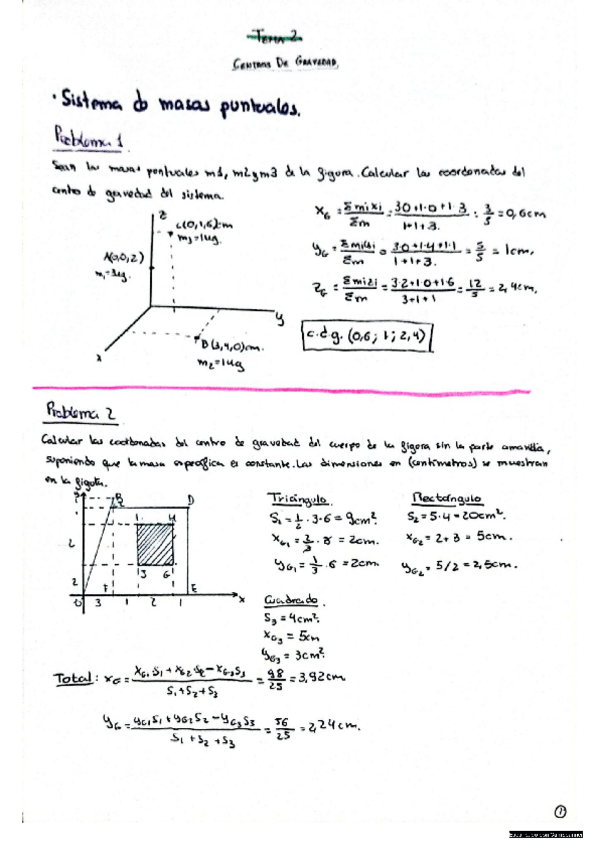 Tema 2
Centros De Gravedad.
· Sistema de masas puntuales.
Problema 1.
Sean las masas puntuales m1, m2 y m3 de la figura. Calcular las coordenadas del
centro de gravedad del sistema.
z
C(0,1,6)cm
m3=1ug
A(0,0,2)
m1=3ug.
y
x
B(3,4,0)cm.
m2=1ug
XG = Σmixi/Σm = 3·0+1·0+1·3/1+1+3. = 3/5 = 0,6cm
yG = Σmiyi/Σm = 3·0+1·4+1·1/1+1+3. = 5/5 = 1cm.
ZG = Σmizi/Σm = 3·2+1·0+1·6/3+1+1 = 12/5 = 2,4cm.
c.d.g. (0,6; 1; 2,4)
Problema 2
Calcular las coordenadas del centro de gravedad del cuerpo de la figura sin la parte amarilla,
suponiendo que la masa especifica es constante. Las dimensiones en (centímetros) se muestran
en la figura.
B D
1 H
2
J G
2
O F E x
3 1 2 1
Triángulo
S1 = 1/2 · 3·6 = 9cm².
XG1 = 2/3 · 3 = 2cm.
yG1 = 1/3 · 6 = 2cm
Rectángulo
S2 = 5·4 = 20cm².
XG2 = 2+3 = 5cm.
yG2 = 5/2 = 2,5cm.
Cuadrado.
S3 = 4cm².
XG3 = 5cm
yG3 = 3cm.
Total: XG = XG1S1+XG2S2-XG3S3/S1+S2+S3 = 98/25 = 3,92cm
yG = yG1S1+yG2S2-yG3S3/S1+S2+S3 = 56/25 = 2,24cm.
1